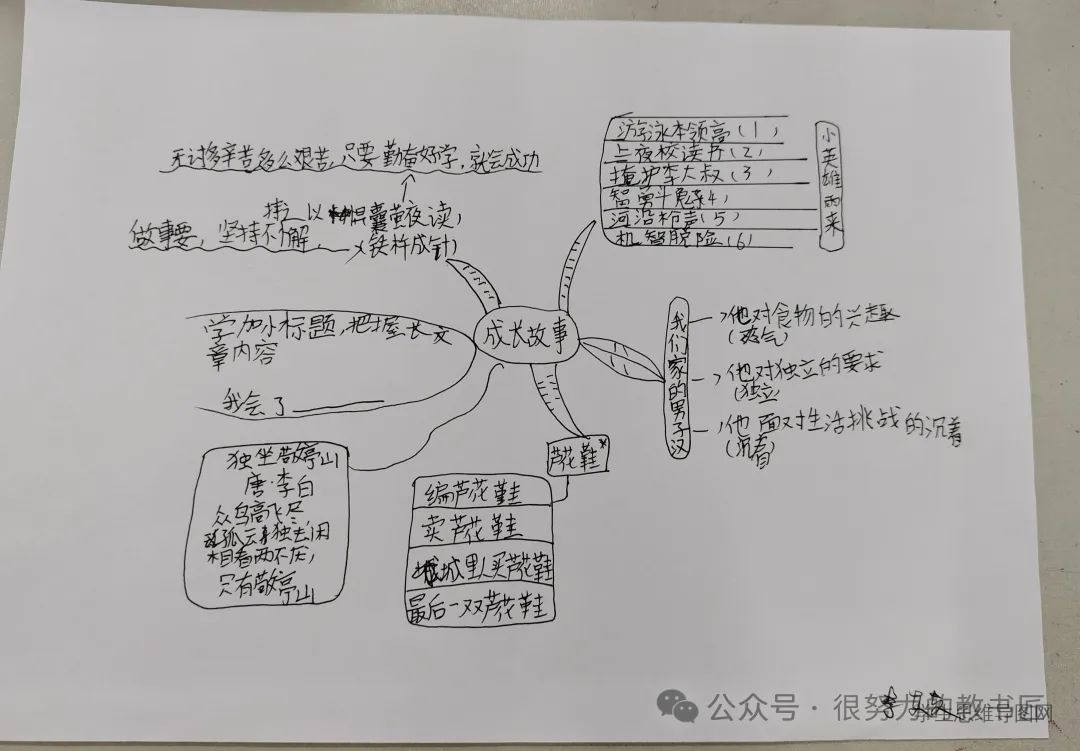 成长故事
无论多辛苦多么艰苦,只要勤奋好学,就会成功
囊萤夜读
铁杵成针
做事要,坚持不懈
学加小标题,把握长文
章内容
我会了
独坐敬亭山
唐·李白
众鸟高飞尽
孤云独去闲
相看两不厌,
只有敬亭山
芦花鞋*
编芦花鞋
卖芦花鞋
城里人买芦花鞋
最后一双芦花鞋
我们家的男子汉
他对食物的兴趣
他对独立的要求
(独立
他面对生活挑战的沉着
(沉着)
小英雄雨来
游泳本领高(1)
上夜校读书(2)
掩护李大叔(3)
智勇斗鬼子(4)
河沿枪声(5)
机智脱险(6)
公众号·很努力的教书匠
思维导图网